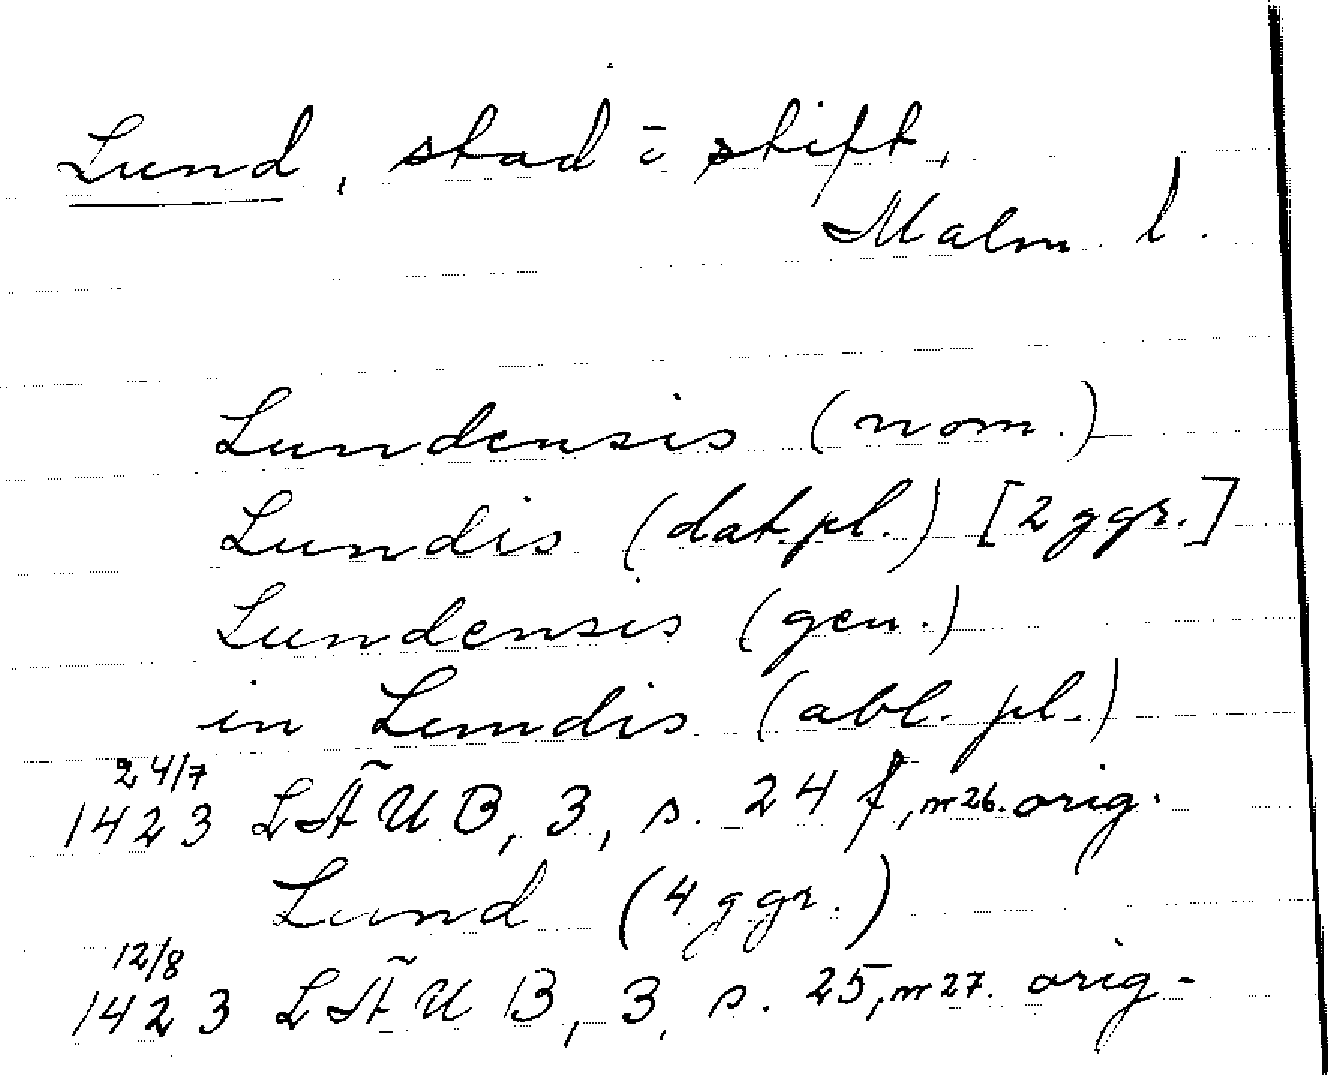 Lund, stad o stift,
Malm. l.
Lundensis (nom.)
Lundis (dat. pl.) [2 ggr.]
Lundensis (gen.)
in Lundis (abl. pl.)
24/7
1423 LÄUB, 3, s. 24 f, nr 26. orig.
Lund (4 ggr.)
12/8
1423 LÄUB, 3, s. 25, nr 27. orig.